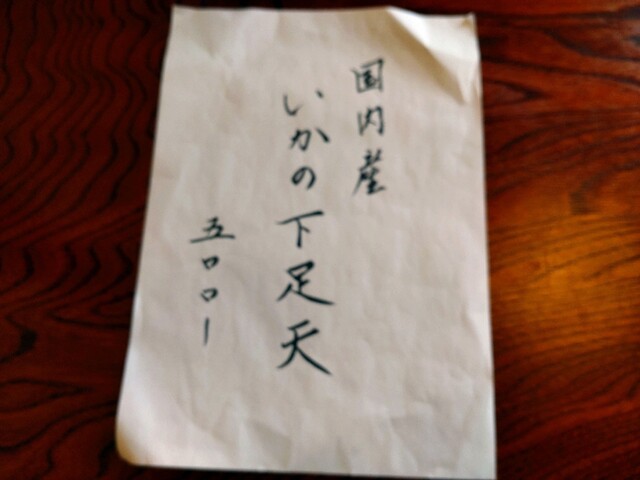 国内産
いかの下足天
五〇〇ー